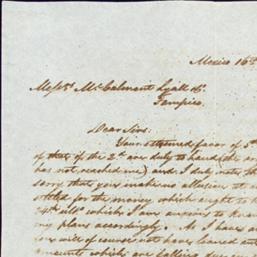 Mexico 16th
Messrs McCalmont Lyall & Co.
Tampico.
Dear Sirs.
Your esteemed favor of 5th
of that if the 2d are duly to hand (the
has not reached me) and I duly note the
sorry that you make no allusion at
for the money which ought to
24th ulto which I am anxious to know
my plans accordingly. As I have
will of course not have leaned
amounts which are falling due